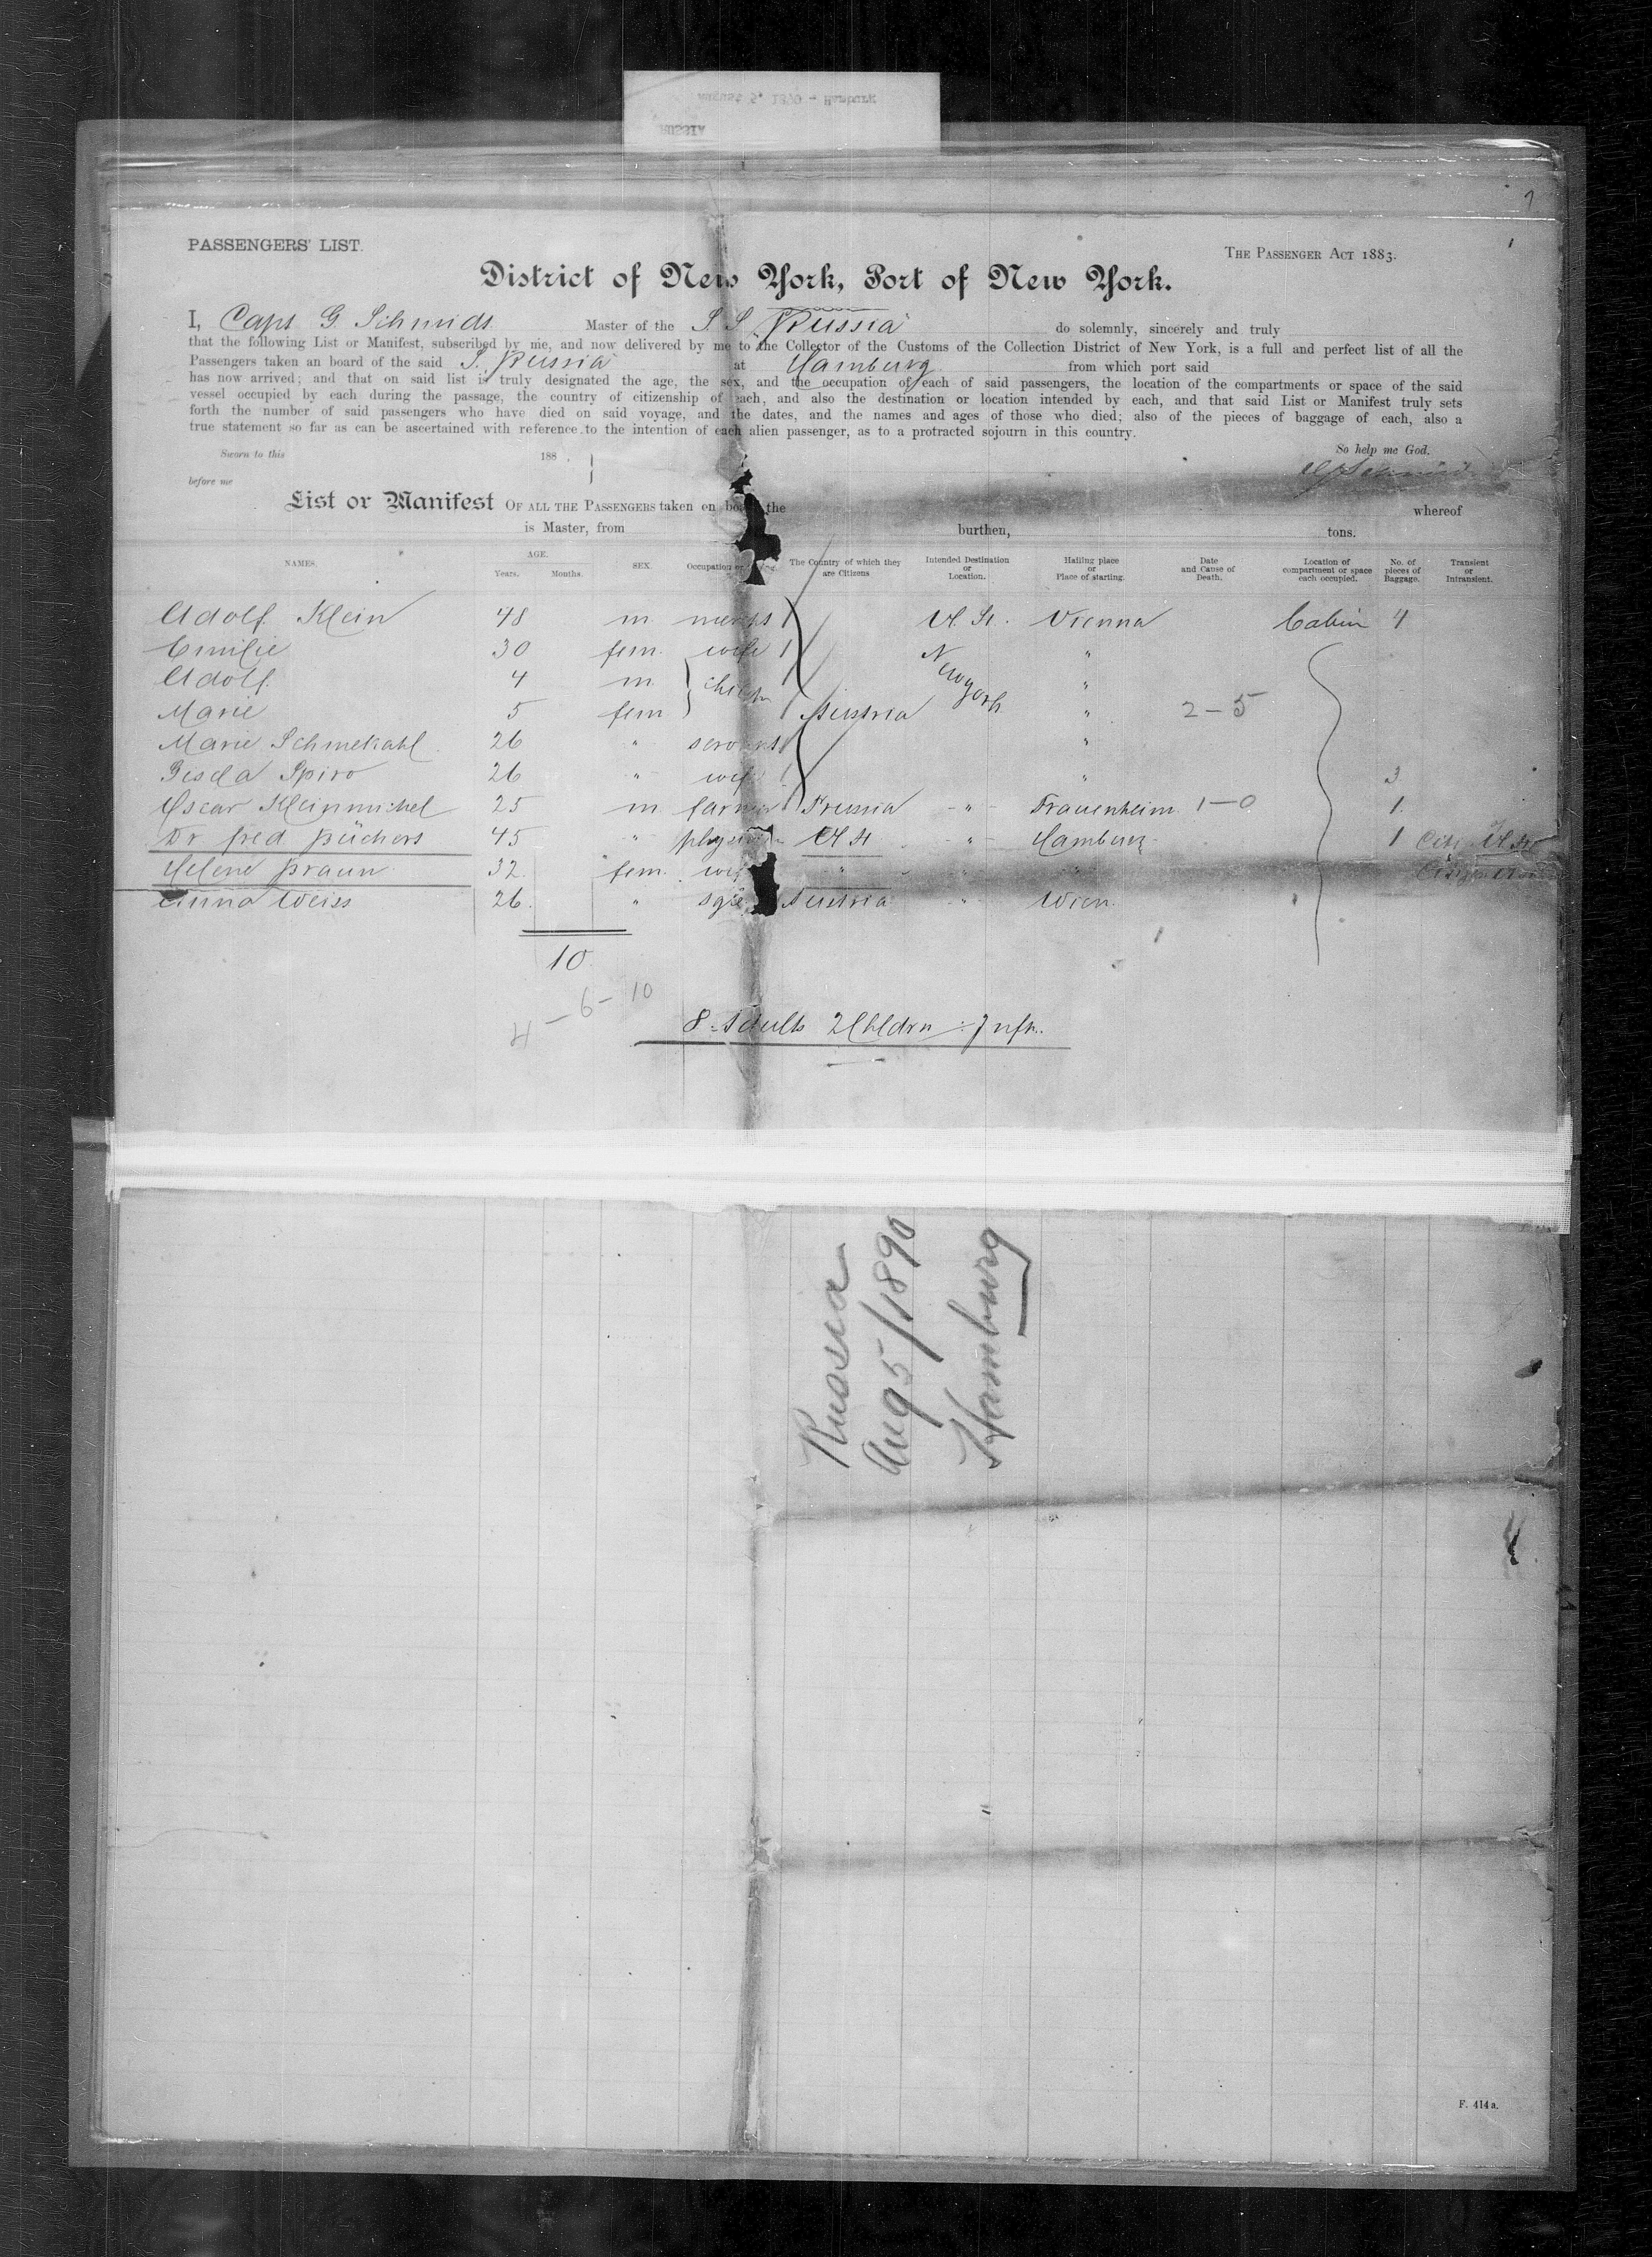 August 5, 1890 - Hamburg
RUSSIA
PASSENGERS' LIST.
THE PASSENGER ACT 1883.
District of New York, Port of New York.
I, Capt G. Schmidt Master of the S S "Russia" do solemnly, sincerely and truly
that the following List or Manifest, subscribed by me, and now delivered by me to the Collector of the Customs of the Collection District of New York, is a full and perfect list of all the
Passengers taken an board of the said S. Russia at Hamburg from which port said
has now arrived; and that on said list is truly designated the age, the sex, and the occupation of each of said passengers, the location of the compartments or space of the said
vessel occupied by each during the passage, the country of citizenship of each, and also the destination or location intended by each, and that said List or Manifest truly sets
forth the number of said passengers who have died on said voyage, and the dates, and the names and ages of those who died; also of the pieces of baggage of each, also a
true statement so far as can be ascertained with reference to the intention of each alien passenger, as to a protracted sojourn in this country.
Sworn to this 188 . So help me God.
before me G Schmidt
List or Manifest OF ALL THE PASSENGERS taken on board the whereof
is Master, from burthen, tons.
NAMES. AGE. Years. Months. SEX. Occupation The Country of which they are Citizens Intended Destination or Location. Hailing place or Place of starting. Date and Cause of Death. Location of compartment or space each occupied. No. of pieces of Baggage. Transient or Intransient.
Adolf Klein 48 m U. St. Vienna Cabin 4
Emilie 30 fem. wife New York "
Adolf 4 m "
Marie 5 fem Austria " 2-5
Marie Schmekahl 26 " servant "
Gisela Spiro 26 " wife " 3
Oscar Kleinmichel 25 m farmer Prussia -"- Frauenheim 1-0 1.
Dr fred Büchers 45 " physician U St -"- Hamburg 1 U St
Helene Braun 32 fem. wife " " "
Anna Weiss 26 " Austria " Wien
10
4-6-10
8 Adults 2 Chldrn Infn.
Russia
Aug 5/1890
Hamburg
F. 414 a.